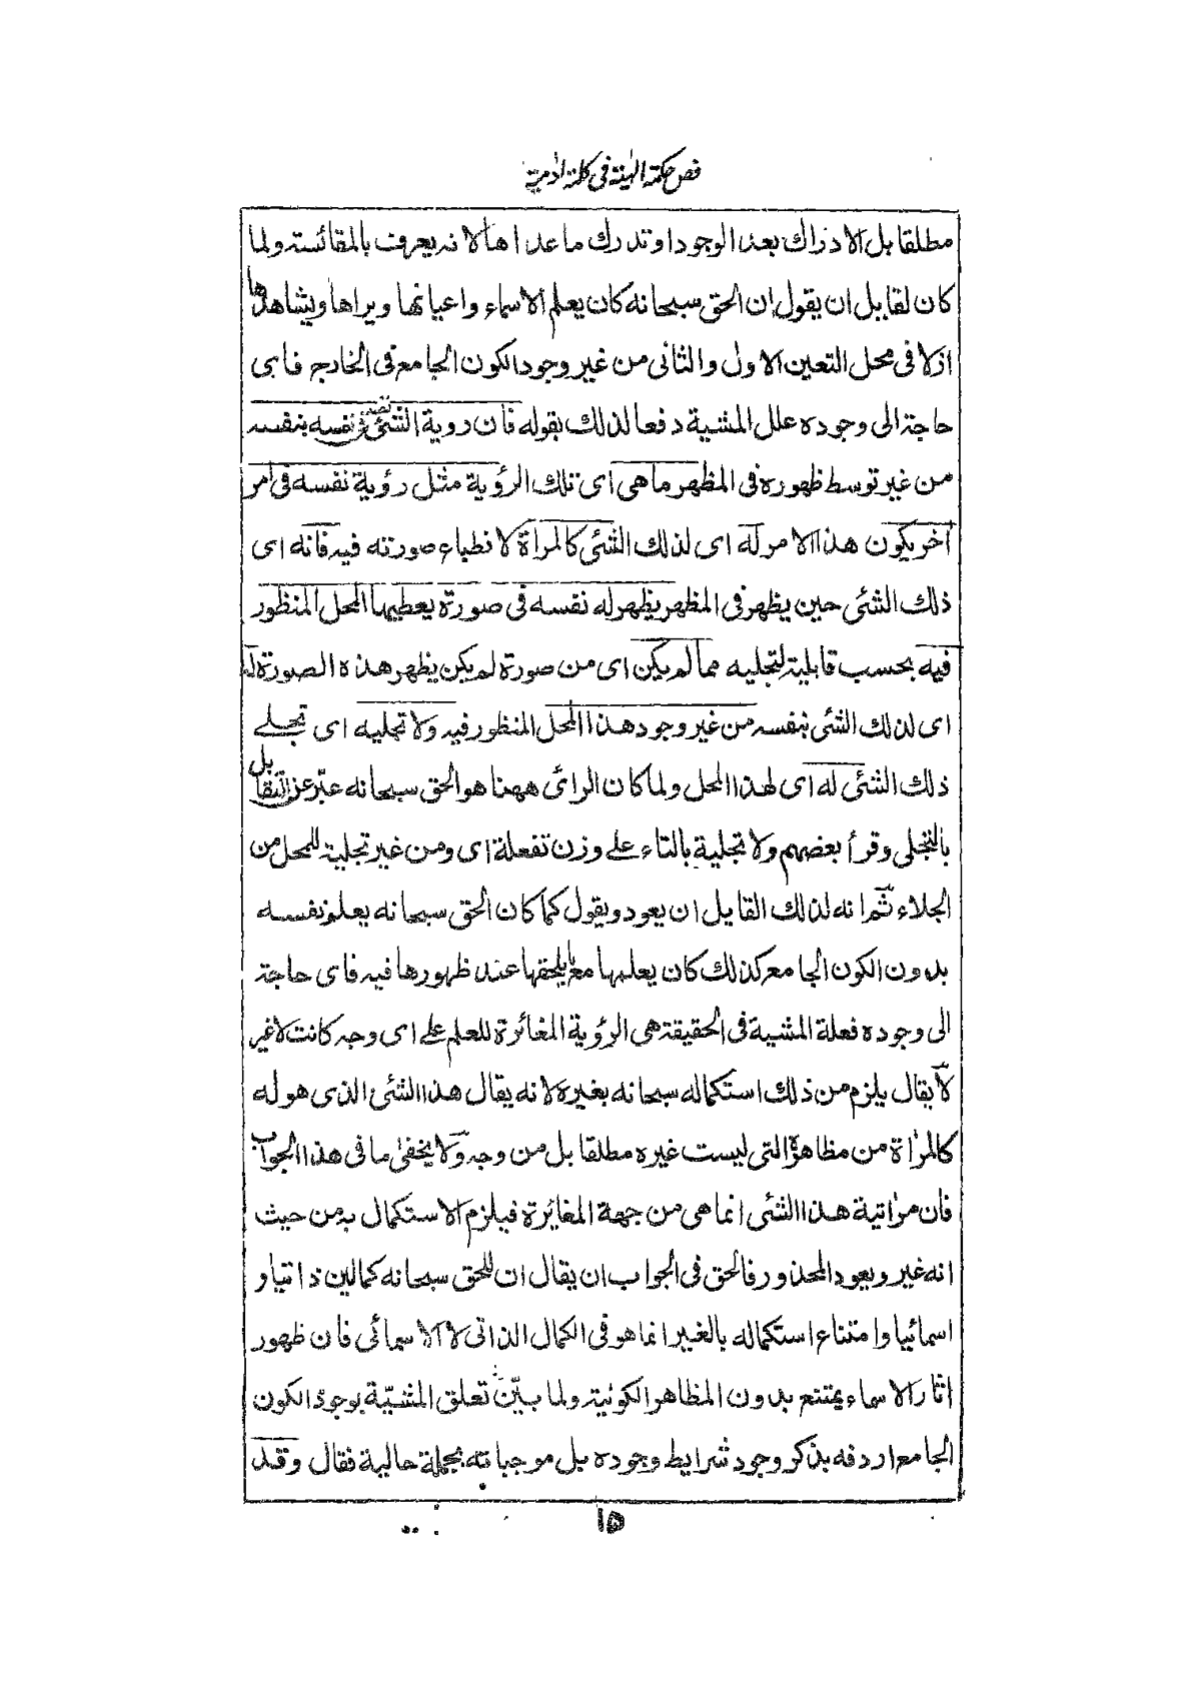 فص حكمة الهية في كلمة ادمية
مطلقا بل الادراك بعد الوجود او تدرك ما عداها لانه يعرف بالمقائسته ولما
كان لقايل ان يقول ان الحق سبحانه كان يعلم الاسماء واعيانها ويراها ويشاهدها
ازلا في محل التعين الاول والثاني من غير وجود الكون الجامع في الخارج فاى
حاجة الى وجوده علل المشية دفعا لذلك بقوله فان روية الشئ نفسه بنفسه
من غير توسط ظهوره في المظهر ما هى اى تلك الرؤية مثل رؤية نفسه في امر
آخر يكون هذا الامر له اى لذلك الشئ كالمراة لانطباع صورته فيه فانه اى
ذلك الشئ حين يظهر في المظهر يظهر له نفسه في صورة يعطيها المحل المنظور
فيه بحسب قابلية لتجليه مما لم يكن اى من صورة لم يكن يظهر هذه الصورة له
اى لذلك الشئ بنفسه من غير وجود هذا المحل المنظور فيه ولا تجليه اى تجلے
ذلك الشئ له اى لهذا المحل ولما كان الرائى ههنا هو الحق سبحانه عبّر عن التقابل
بالتجلى وقرأ بعضهم ولا تجلية بالتاء علے وزن تفعلة اى ومن غير تجلية للمحل من
الجلاء ثم انه لذلك القايل ان يعود ويقول كما كان الحق سبحانه يعلم نفسه
بدون الكون الجامع كذلك كان يعلمها مع ما يلحقها عند ظهورها فيه فاى حاجة
الى وجوده فعلة المشية في الحقيقة هى الرؤية المغائرة للعلم علے اى وجه كانت لا غير
لا يقال يلزم من ذلك استكماله سبحانه بغيره لانه يقال هذا الشئ الذى هو له
كالمراة من مظاهرة التى ليست غيره مطلقا بل من وجه ولا يخفى ما في هذا الجواب
فان مراتية هذا الشئ انما هى من جهة المغائرة فيلزم الاستكمال به من حيث
انه غير ويعود المحذور فالحق في الجواب ان يقال ان للحق سبحانه كمالين ذاتيا و
اسمائيا وامتناع استكماله بالغير انما هو في الكمال الذاتى لا الاسمائى فان ظهور
اثار الاسماء يمتنع بدون المظاهر الكونية ولما بيّن تعلق المشيّة بوجود الكون
الجامع اردفه بذكر وجود شرايط وجوده بل موجباته بجملة حالية فقال وقد
١٥